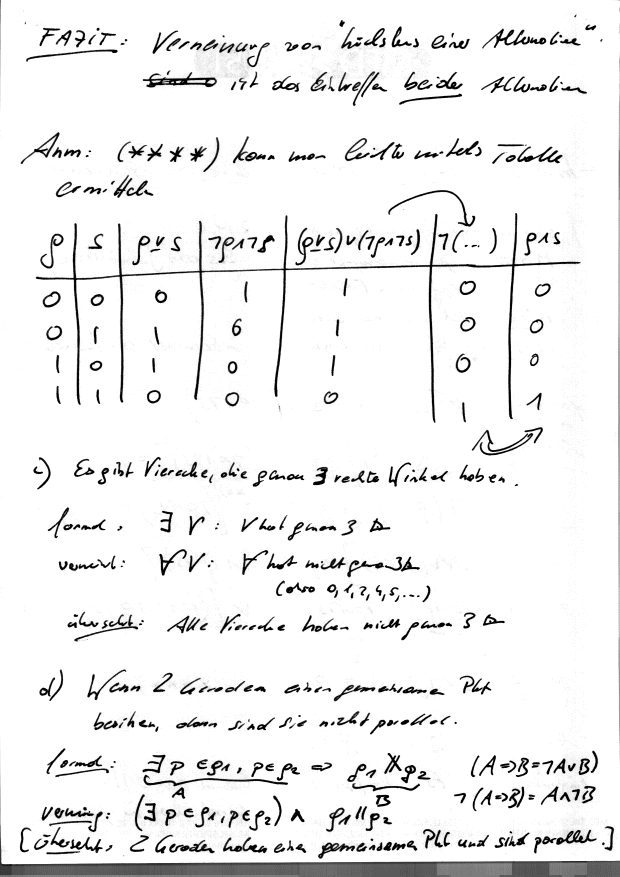 FAZIT: Verneinung von "höchstens einer Alternative"
ist das Eintreffen beider Alternativen
Anm: (****) kann man leicht mittels Tabelle
ermitteln
ρ | s | ρ ⊻ s | ¬ρ∧¬s | (ρ⊻s)∨(¬ρ∧¬s) | ¬(...) | ρ∧s
0 | 0 | 0 | 1 | 1 | 0 | 0
0 | 1 | 1 | 0 | 1 | 0 | 0
1 | 0 | 1 | 0 | 1 | 0 | 0
1 | 1 | 0 | 0 | 0 | 1 | 1
c) Es gibt Vierecke, die genau 3 rechte Winkel haben.
formal: ∃ V: V hat genau 3 ⊾
verneint: ∀ V: V hat nicht genau 3 ⊾
(also 0, 1, 2, 4, 5, ...)
übersetzt: Alle Vierecke haben nicht genau 3 ⊾
d) Wenn 2 Geraden einen gemeinsamen Pkt
besitzen, dann sind sie nicht parallel.
formal: ∃ p ∈ g1, p ∈ g2 ⇒ g1 ∦ g2 (A⇒B = ¬A∨B)
A B ¬(A⇒B) = A∧¬B
Verneinung: (∃ p ∈ g1, p ∈ g2) ∧ g1 ∥ g2
[übersetzt: 2 Geraden haben einen gemeinsamen Pkt und sind parallel.]